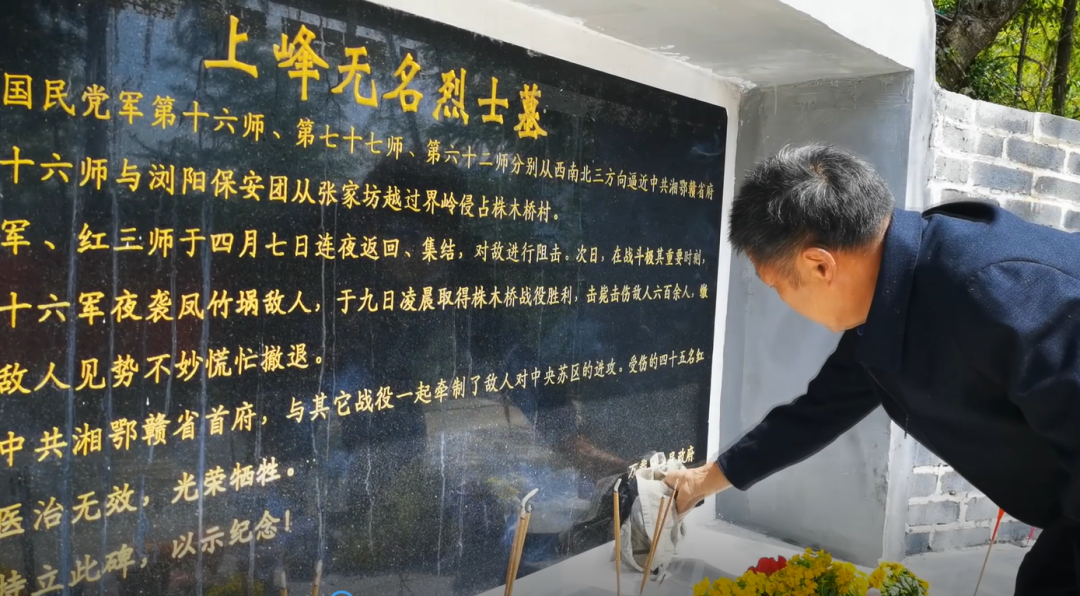 上峰无名烈士墓
国民党军第十六师、第七十七师、第六十二师分别从西南北三方向逼近中共湘鄂赣省府
十六师与浏阳保安团从张家坊越过界岭侵占株木桥村。
军、红三师于四月七日连夜返回、集结，对敌进行阻击。次日，在战斗极其重要时刻，
十六军夜袭凤竹埚敌人，于九日凌晨取得株木桥战役胜利，击毙击伤敌人六百余人，缴
敌人见势不妙慌忙撤退。
中共湘鄂赣省首府，与其它战役一起牵制了敌人对中央苏区的进攻。受伤的四十五名红
医治无效，光荣牺牲。
特立此碑，以示纪念！
政府